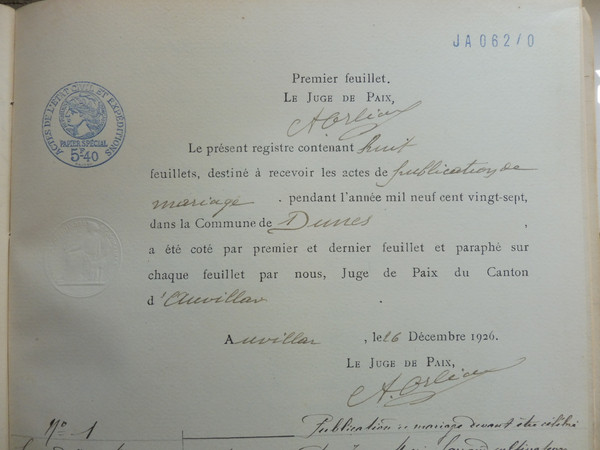 JA 062/0
Premier feuillet.
LE JUGE DE PAIX,
ACTES DE L'ETAT CIVIL ET EXPÉDITIONS
PAPIER SPÉCIAL
5F40
Le présent registre contenant huit
feuillets, destiné à recevoir les actes de publication de
mariage . pendant l'année mil neuf cent vingt-sept,
dans la Commune de Dunes ,
a été coté par premier et dernier feuillet et paraphé sur
chaque feuillet par nous, Juge de Paix du Canton
d'Auvillar .
Auvillar , le 26 Décembre 1926.
LE JUGE DE PAIX,
N° 1 Publication de mariage devant être célébré